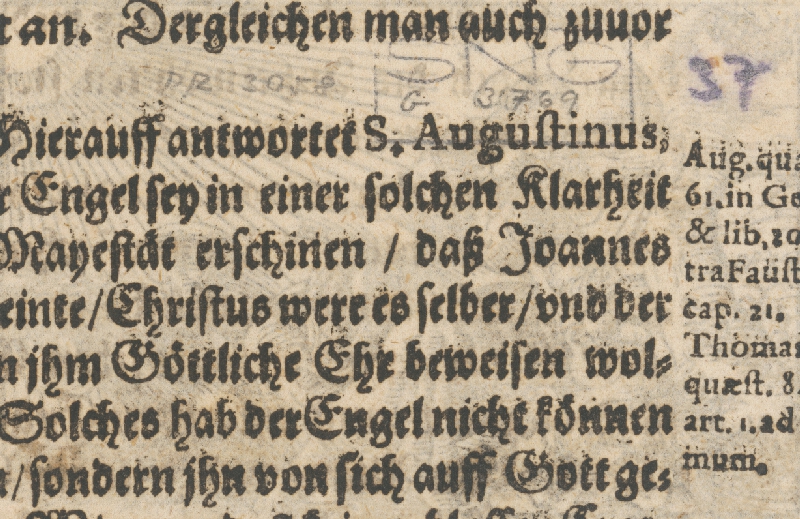 an. Dergleichen man auch zuuor
SNG
PR 3058
G 31769
37
Hierauff antwortet S. Augustinus,
Engel sey in einer solchen Klarheit
Mayestät erschinen / daß Joannes
meinte/Christus were es selber/vnd der
jhm Göttliche Ehr beweisen wol-
Solches hab der Engel nicht können
/sondern jhn von sich auff Gott ge-
Aug. quæ
61. in Ge
& lib. 20
tra Faust
cap. 21.
Thomas
quæst. 8
art. 1. ad
mum.